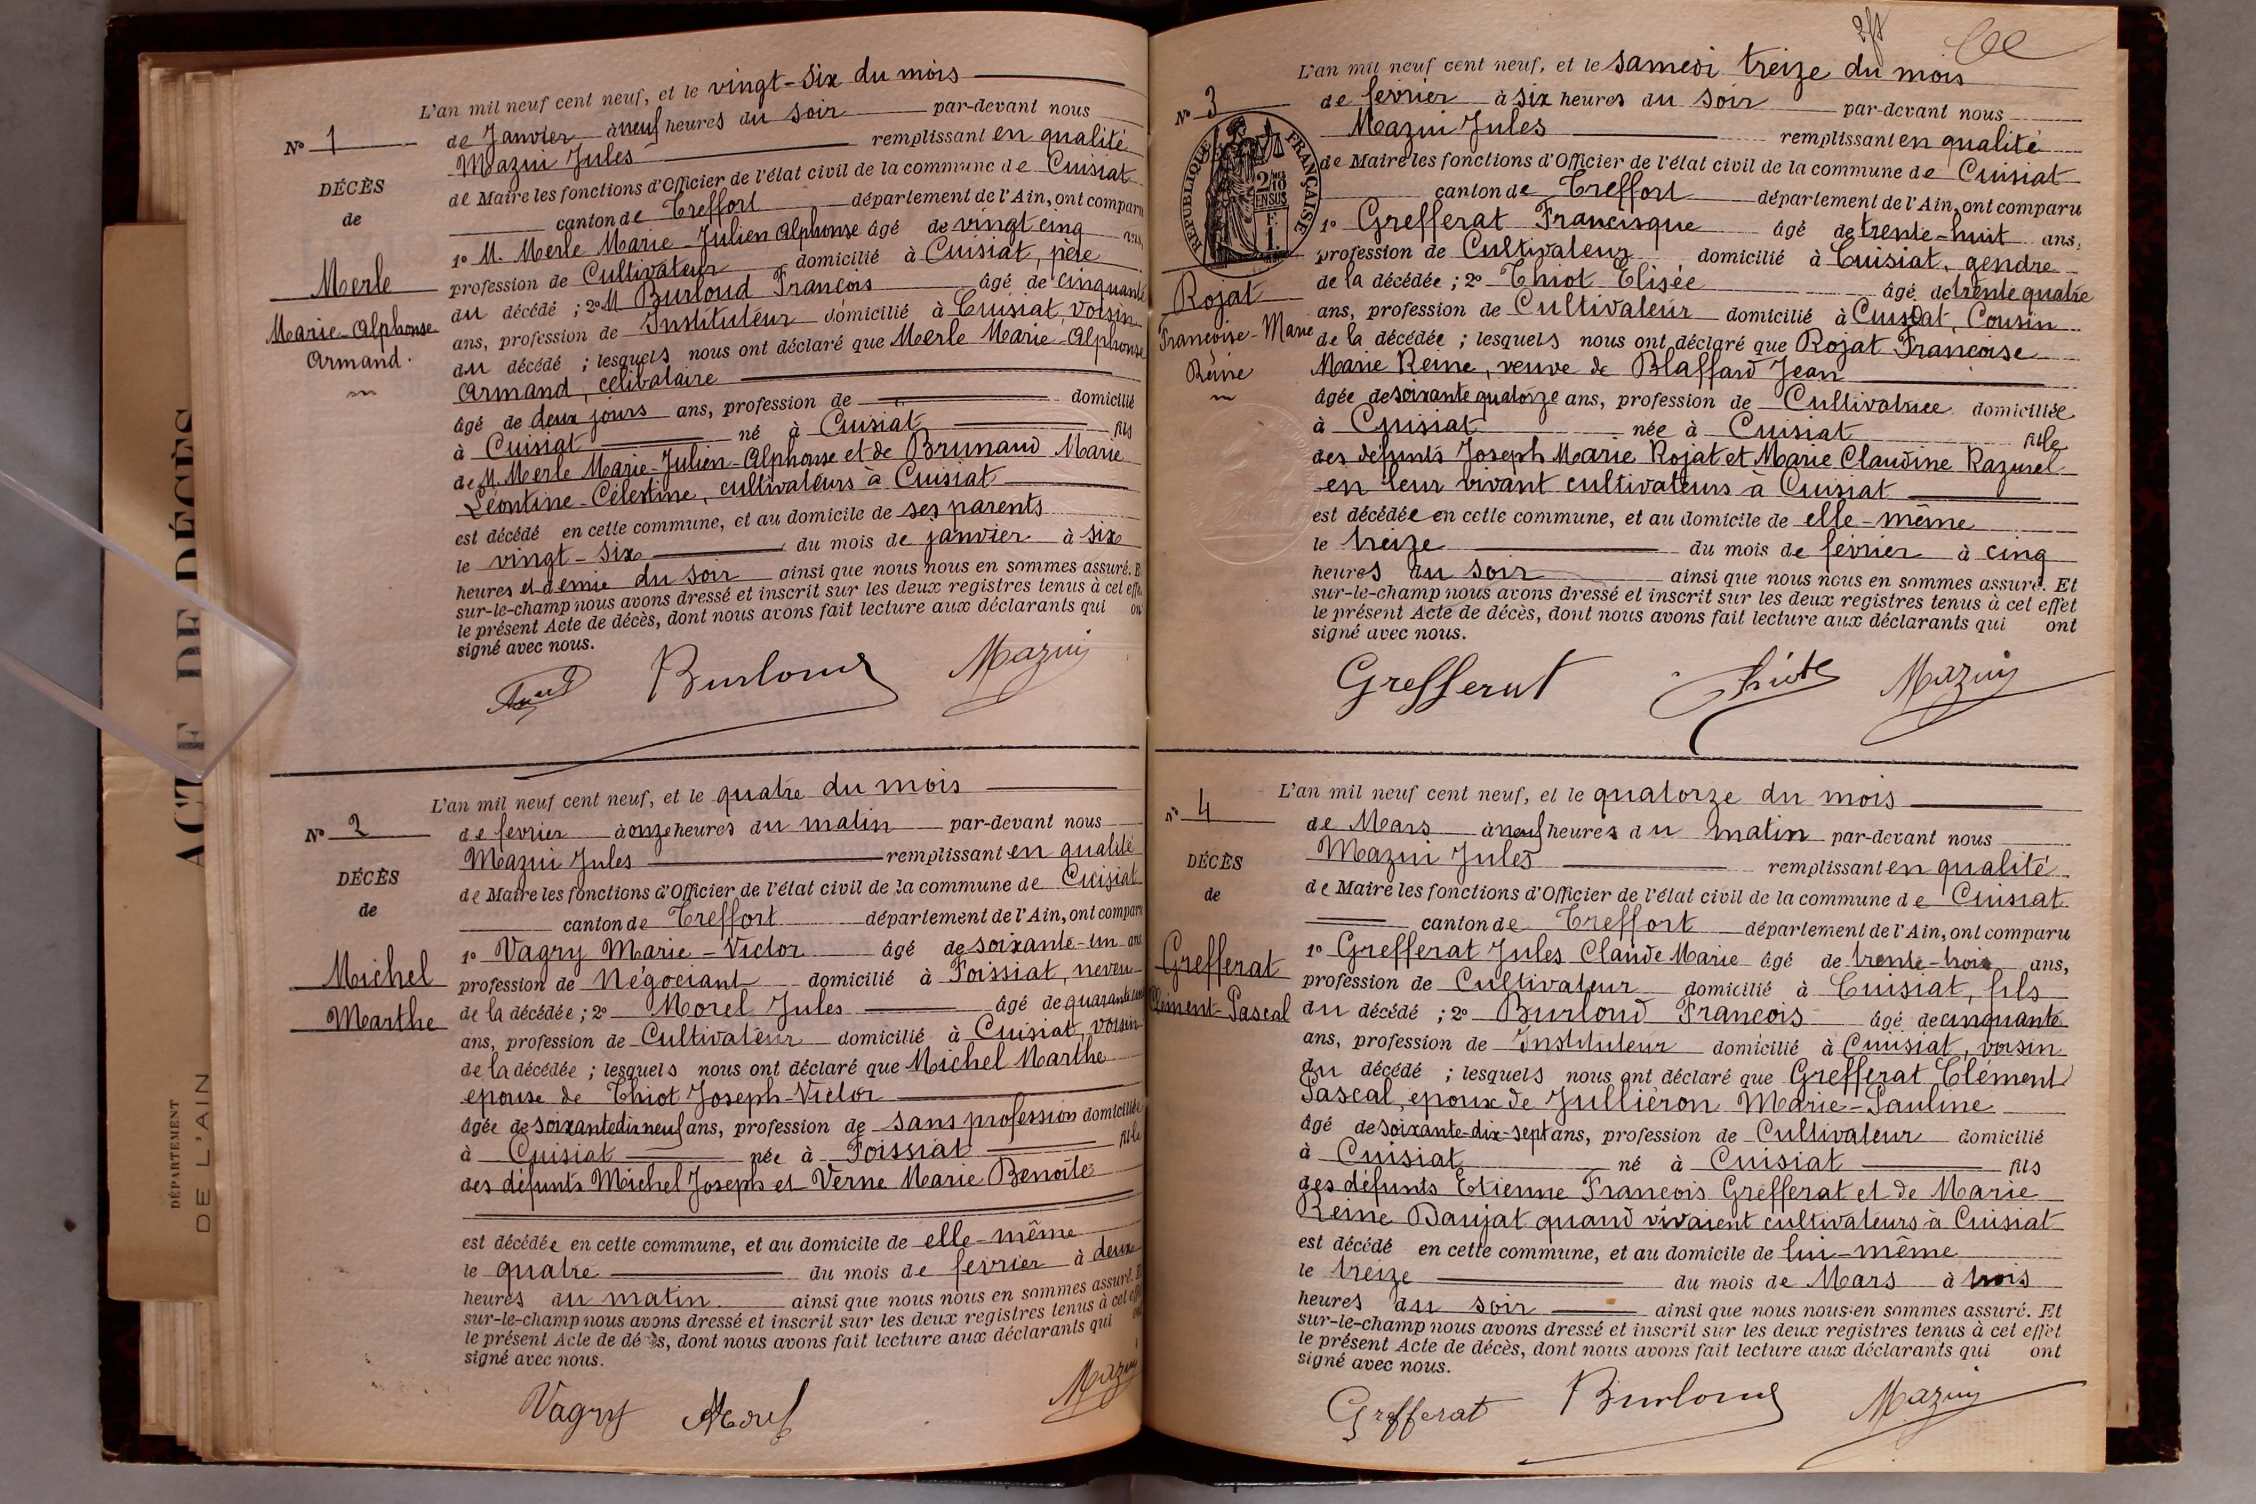 ACTE DE DÉCÈS
DÉPARTEMENT
DE L'AIN
N° 1
DÉCÈS
de
Merle
Marie-Alphonse
Armand.
L'an mil neuf cent neuf, et le vingt-six du mois
de Janvier à neuf heures du soir par-devant nous
Mazui Jules remplissant en qualité
de Maire les fonctions d'Officier de l'état civil de la commune de Cuisiat
canton de Treffort département de l'Ain, ont comparu
1° M. Merle Marie-Julien Alphonse âgé de vingt cinq ans,
profession de Cultivateur domicilié à Cuisiat, père
du décédé ; 2° M Burloud François âgé de cinquante
ans, profession de Instituteur domicilié à Cuisiat, voisin
du décédé ; lesquels nous ont déclaré que Merle Marie-Alphonse
Armand, célibataire
âgé de deux jours ans, profession de domicilié
à Cuisiat né à Cuisiat fils
de M. Merle Marie-Julien-Alphonse et de Brunaud Marie
Léontine-Célestine, cultivateurs à Cuisiat
est décédé en cette commune, et au domicile de ses parents
le vingt-six du mois de janvier à six
heures et demie du soir ainsi que nous nous en sommes assuré. E
sur-le-champ nous avons dressé et inscrit sur les deux registres tenus à cet effe
le présent Acte de décès, dont nous avons fait lecture aux déclarants qui on
signé avec nous.
Burloud Mazuy
N° 2
DÉCÈS
de
Michel
Marthe
L'an mil neuf cent neuf, et le quatre du mois
de fevrier à onze heures du matin par-devant nous
Mazui Jules remplissant en qualité
de Maire les fonctions d'Officier de l'état civil de la commune de Cuisiat
canton de Treffort département de l'Ain, ont comparu
1° Vagry Marie-Victor âgé de soixante-un ans
profession de Négociant domicilié à Foissiat, neveu
de la décédée ; 2° Morel Jules âgé de quarante
ans, profession de Cultivateur domicilié à Cuisiat, voisin
de la décédée ; lesquels nous ont déclaré que Michel Marthe
epouse de Thiot Joseph-Victor
âgée de soixante dix neuf ans, profession de sans profession domiciliée
à Cuisiat née à Foissiat fille
des défunts Michel Joseph et Verne Marie Benoite
est décédée en cette commune, et au domicile de elle-même
le quatre du mois de fevrier à deux
heures du matin ainsi que nous nous en sommes assuré. E
sur-le-champ nous avons dressé et inscrit sur les deux registres tenus à cet effe
le présent Acte de décès, dont nous avons fait lecture aux déclarants qui on
signé avec nous.
Vagry Morel Mazuy
N° 3
RÉPUBLIQUE FRANÇAISE
2/10
EN SUS
F.
1.
Rojat
Françoise-Marie
Reine
L'an mil neuf cent neuf, et le samedi treize du mois
de fevrier à six heures du soir par-devant nous
Mazui Jules remplissant en qualité
de Maire les fonctions d'Officier de l'état civil de la commune de Cuisiat
canton de Treffort département de l'Ain, ont comparu
1° Grefferat Francisque âgé de trente-huit ans,
profession de Cultivateur domicilié à Cuisiat, gendre
de la décédée ; 2° Thiot Elisée âgé de trente quatre
ans, profession de Cultivateur domicilié à Cuisiat, Cousin
de la décédée ; lesquels nous ont déclaré que Rojat Françoise
Marie Reine, veuve de Blaffard Jean
âgée de soixante quatorze ans, profession de Cultivatrice domiciliée
à Cuisiat née à Cuisiat fille
des défunts Joseph Marie Rojat et Marie Claudine Razurel
en leur vivant cultivateurs à Cuisiat
est décédée en cette commune, et au domicile de elle-même
le treize du mois de février à cinq
heures du soir ainsi que nous nous en sommes assuré. Et
sur-le-champ nous avons dressé et inscrit sur les deux registres tenus à cet effet
le présent Acte de décès, dont nous avons fait lecture aux déclarants qui ont
signé avec nous.
Grefferat Thiot Mazuy
N° 4
DÉCÈS
de
Grefferat
Clément-Pascal
L'an mil neuf cent neuf, et le quatorze du mois
de Mars à neuf heures du matin par-devant nous
Mazui Jules remplissant en qualité
de Maire les fonctions d'Officier de l'état civil de la commune de Cuisiat
canton de Treffort département de l'Ain, ont comparu
1° Grefferat Jules Claude Marie âgé de trente-trois ans,
profession de Cultivateur domicilié à Cuisiat, fils
du décédé ; 2° Burloud François âgé de cinquante
ans, profession de Instituteur domicilié à Cuisiat, voisin
du décédé ; lesquels nous ont déclaré que Grefferat Clément
Pascal, epoux de Julliéron Marie-Pauline
âgé de soixante-dix-sept ans, profession de Cultivateur domicilié
à Cuisiat né à Cuisiat fils
des défunts Etienne François Grefferat et de Marie
Reine Daujat quand vivaient cultivateurs à Cuisiat
est décédé en cette commune, et au domicile de lui-même
le treize du mois de Mars à trois
heures du soir ainsi que nous nous en sommes assuré. Et
sur-le-champ nous avons dressé et inscrit sur les deux registres tenus à cet effet
le présent Acte de décès, dont nous avons fait lecture aux déclarants qui ont
signé avec nous.
Grefferat Burloud Mazuy